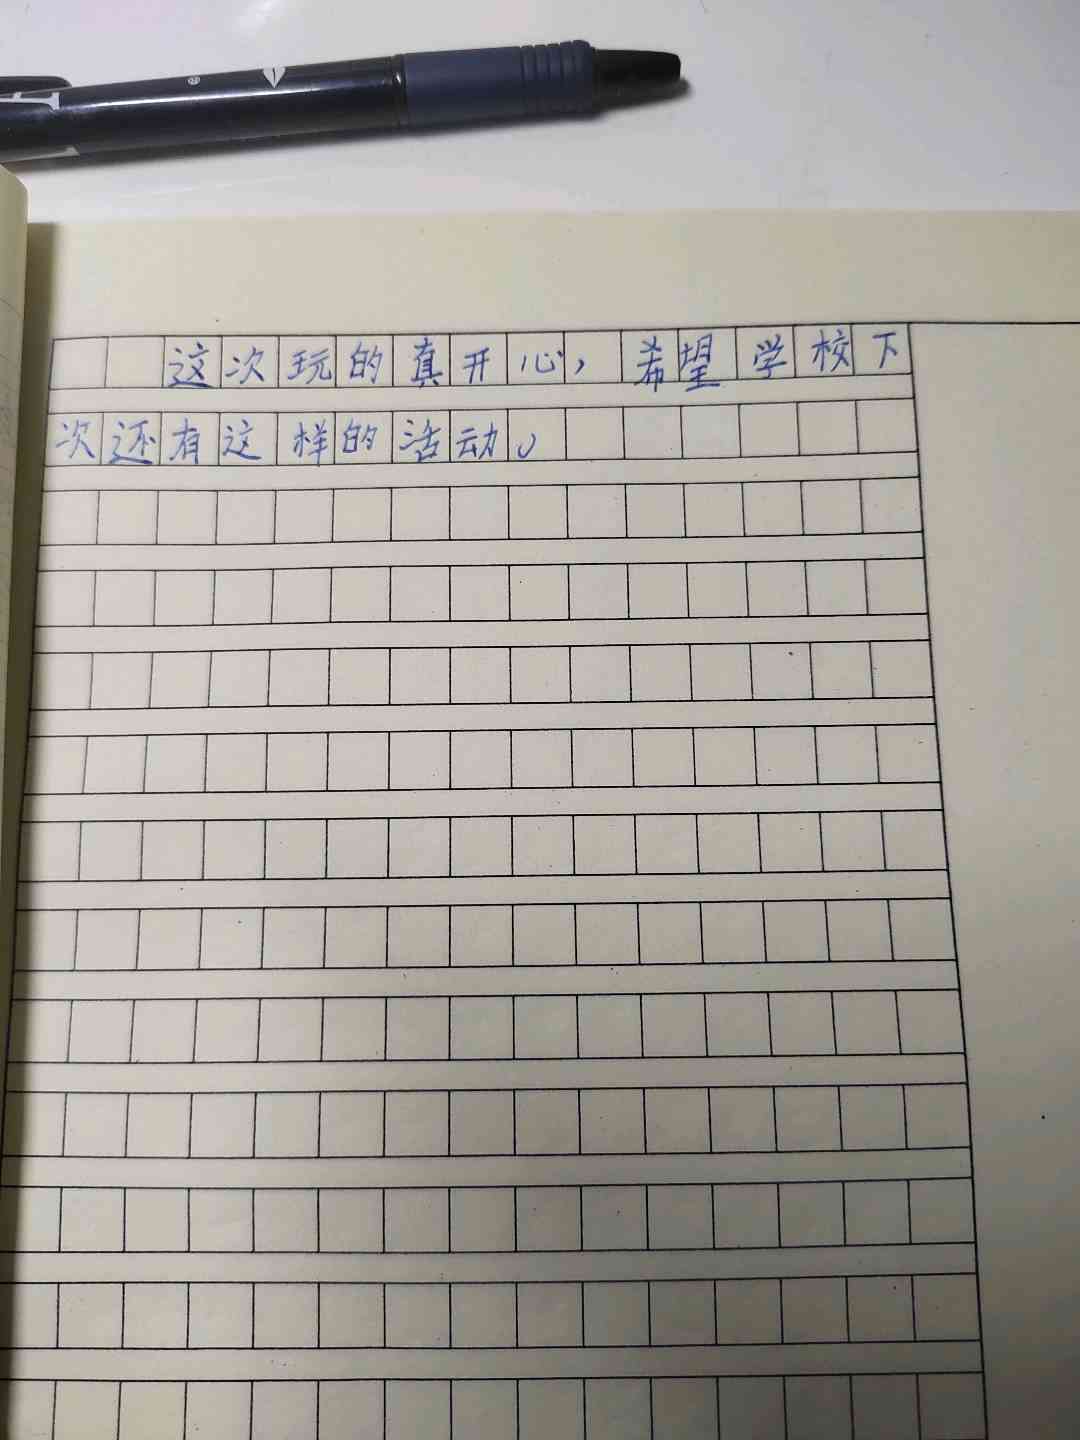 这次玩的真开心，希望学校下
次还有这样的活动。